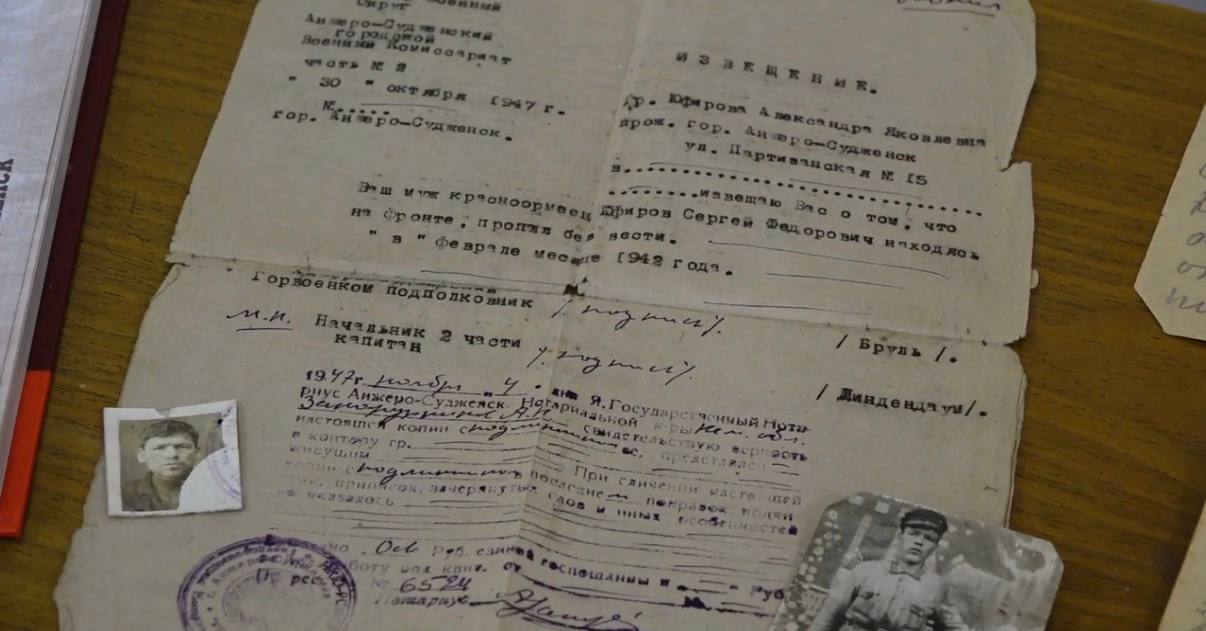 Округ
Анжеро-Судженский
городской
Военный Комиссариат
часть № 2
" 30 " октября 1947 г.
№.....
гор. Анжеро-Судженск.
ИЗВЕЩЕНИЕ.
гр. Юфирова Александра Яковлевна
прож. гор. Анжеро-Судженск
ул. Партизанская № 15
в..............................
........извещаю Вас о том, что
Ваш муж красноормеец Юфиров Сергей Федорович находясь
на фронте, пропал без вести.
" в " феврале месяце 1942 года.
Горвоенком подполковник /подпись/. / Бруль /.
М.П. Начальник 2 части
капитан /подпись/. / Линдендаум/.
1947г. ноября " 4 " дня Я, Государственный Нота-
риус Анжеро-Судженск. Нотариальной к-ры Кем. обл.
свидетельствую верность
настоящей копии с подлинником ее, представлен
в контору гр.
живущий
При сличении настоящей
копии с подлинником в последнем поправок, подчи
сток, приписок, зачеркнутых слов и иных особенностей
не оказалось
Руб. единой госпошлины и — Руб.
По реес № 6524
Нотариус